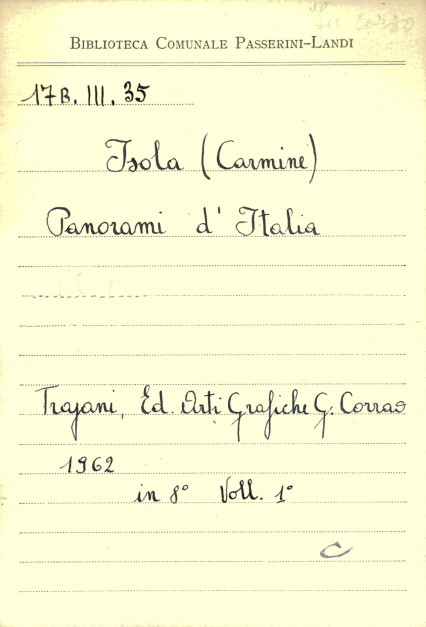 BIBLIOTECA COMUNALE PASSERINI-LANDI
17B. III. 35
Isola (Carmine)
Panorami d' Italia
Trajani, Ed. Arti Grafiche G. Corrao
1962
in 8° Voll. 1°
C